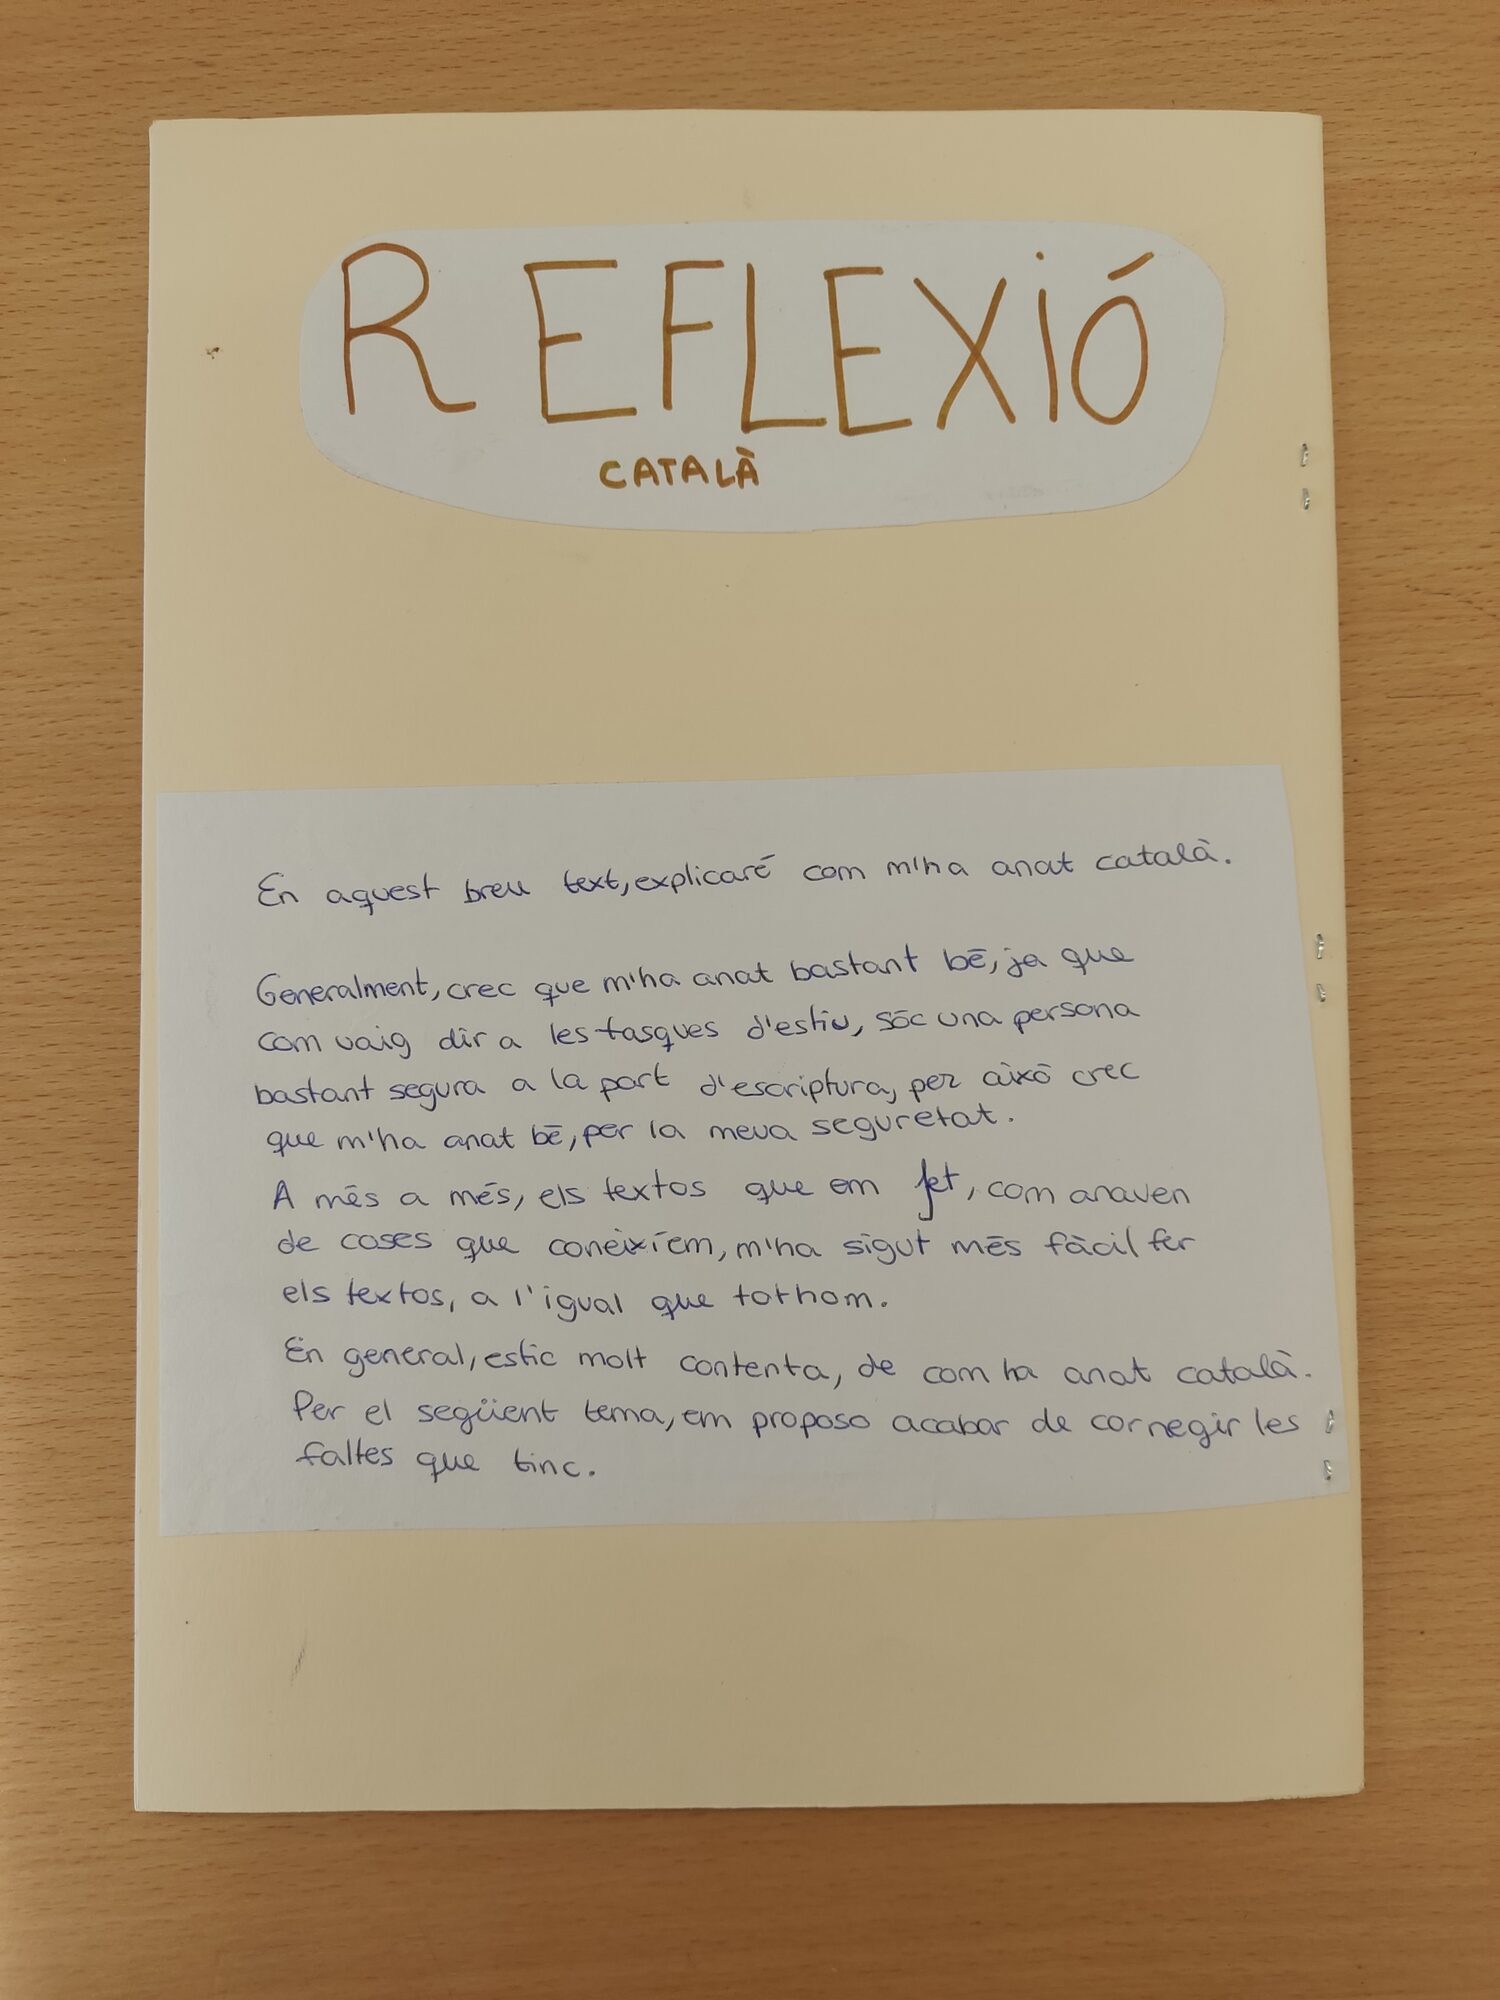 REFLEXIÓ
CATALÀ
En aquest breu text, explicaré com m'ha anat català.
Generalment, crec que m'ha anat bastant bé, ja que
com vaig dir a les tasques d'estiu, sóc una persona
bastant segura a la part d'escriptura, per això crec
que m'ha anat bé, per la meva seguretat.
A més a més, els textos que em fet, com anaven
de coses que coneixíem, m'ha sigut més fàcil fer
els textos, a l'igual que tothom.
En general, estic molt contenta, de com ha anat català.
Per el següent tema, em proposo acabar de corregir les
faltes que tinc.